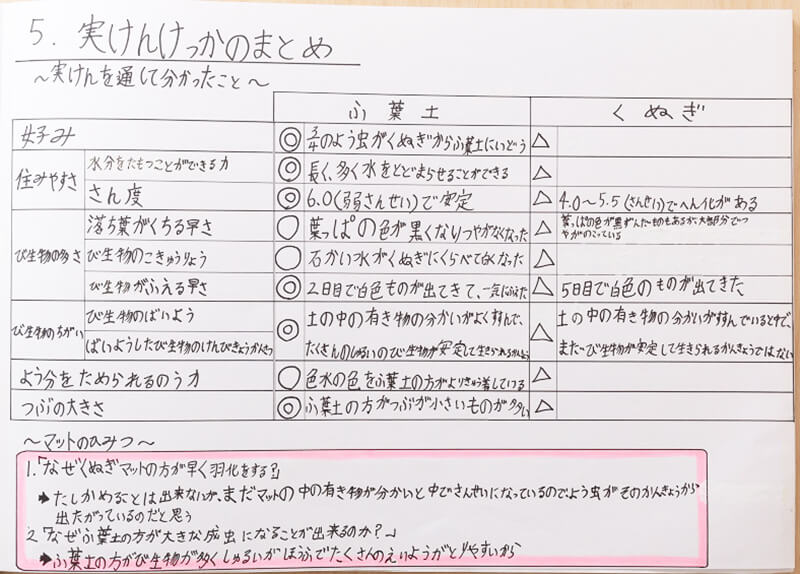 5. 実けんけっかのまとめ
～実けんを通して分かったこと～
ふ葉土 くぬぎ
好み ◎ 3/4のよう虫がくぬぎからふ葉土にいどう △
住みやすさ 水分をたもつことができる力 ◎ 長く、多く水をとどまらせることができる △
さん度 ◎ 6.0(弱さんせい)で安定 △ 4.0～5.5(さんせい)でへん化がある
び生物の多さ 落ち葉がくちる早さ ○ 葉っぱの色が黒くなりつやがなくなった △ 葉っぱの色が黒ずんだものもあるが、大部分でつやがのこっている
び生物のこきゅうりょう ○ 石かい水がくぬぎにくらべて白くなった △
び生物がふえる早さ ◎ 2日目で白色ものが出てきて、一気にふえた △ 5日目で白色のものが出てきた
び生物のちがい び生物のばいよう
ばいようしたび生物のけんびきょうかんさつ
◎ 土の中の有き物の分かいがよくすすんで、
たくさんのしゅるいのび生物が安定して生きられるかんきょう
△ 土の中の有き物の分かいがすすんでいるとちゅうで、
まだび生物が安定して生きられるかんきょうではない
よう分をためられるのう力 ○ 色水の色をふ葉土の方がよりきゅう着している △
つぶの大きさ ◎ ふ葉土の方がつぶが小さいものが多い △
～マットのひみつ～
1.「なぜくぬぎマットの方が早く羽化をする?」
➡たしかめることは出来ないが、まだマットの中の有き物が分かいと中でさんせいになっているのでよう虫がそのかんきょうから
出たがっているのだと思う
2.「なぜふ葉土の方が大きな成虫になることが出来るのか?」
➡ふ葉土の方がび生物が多くしゅるいがほうふでたくさんのえいようがとりやすいから